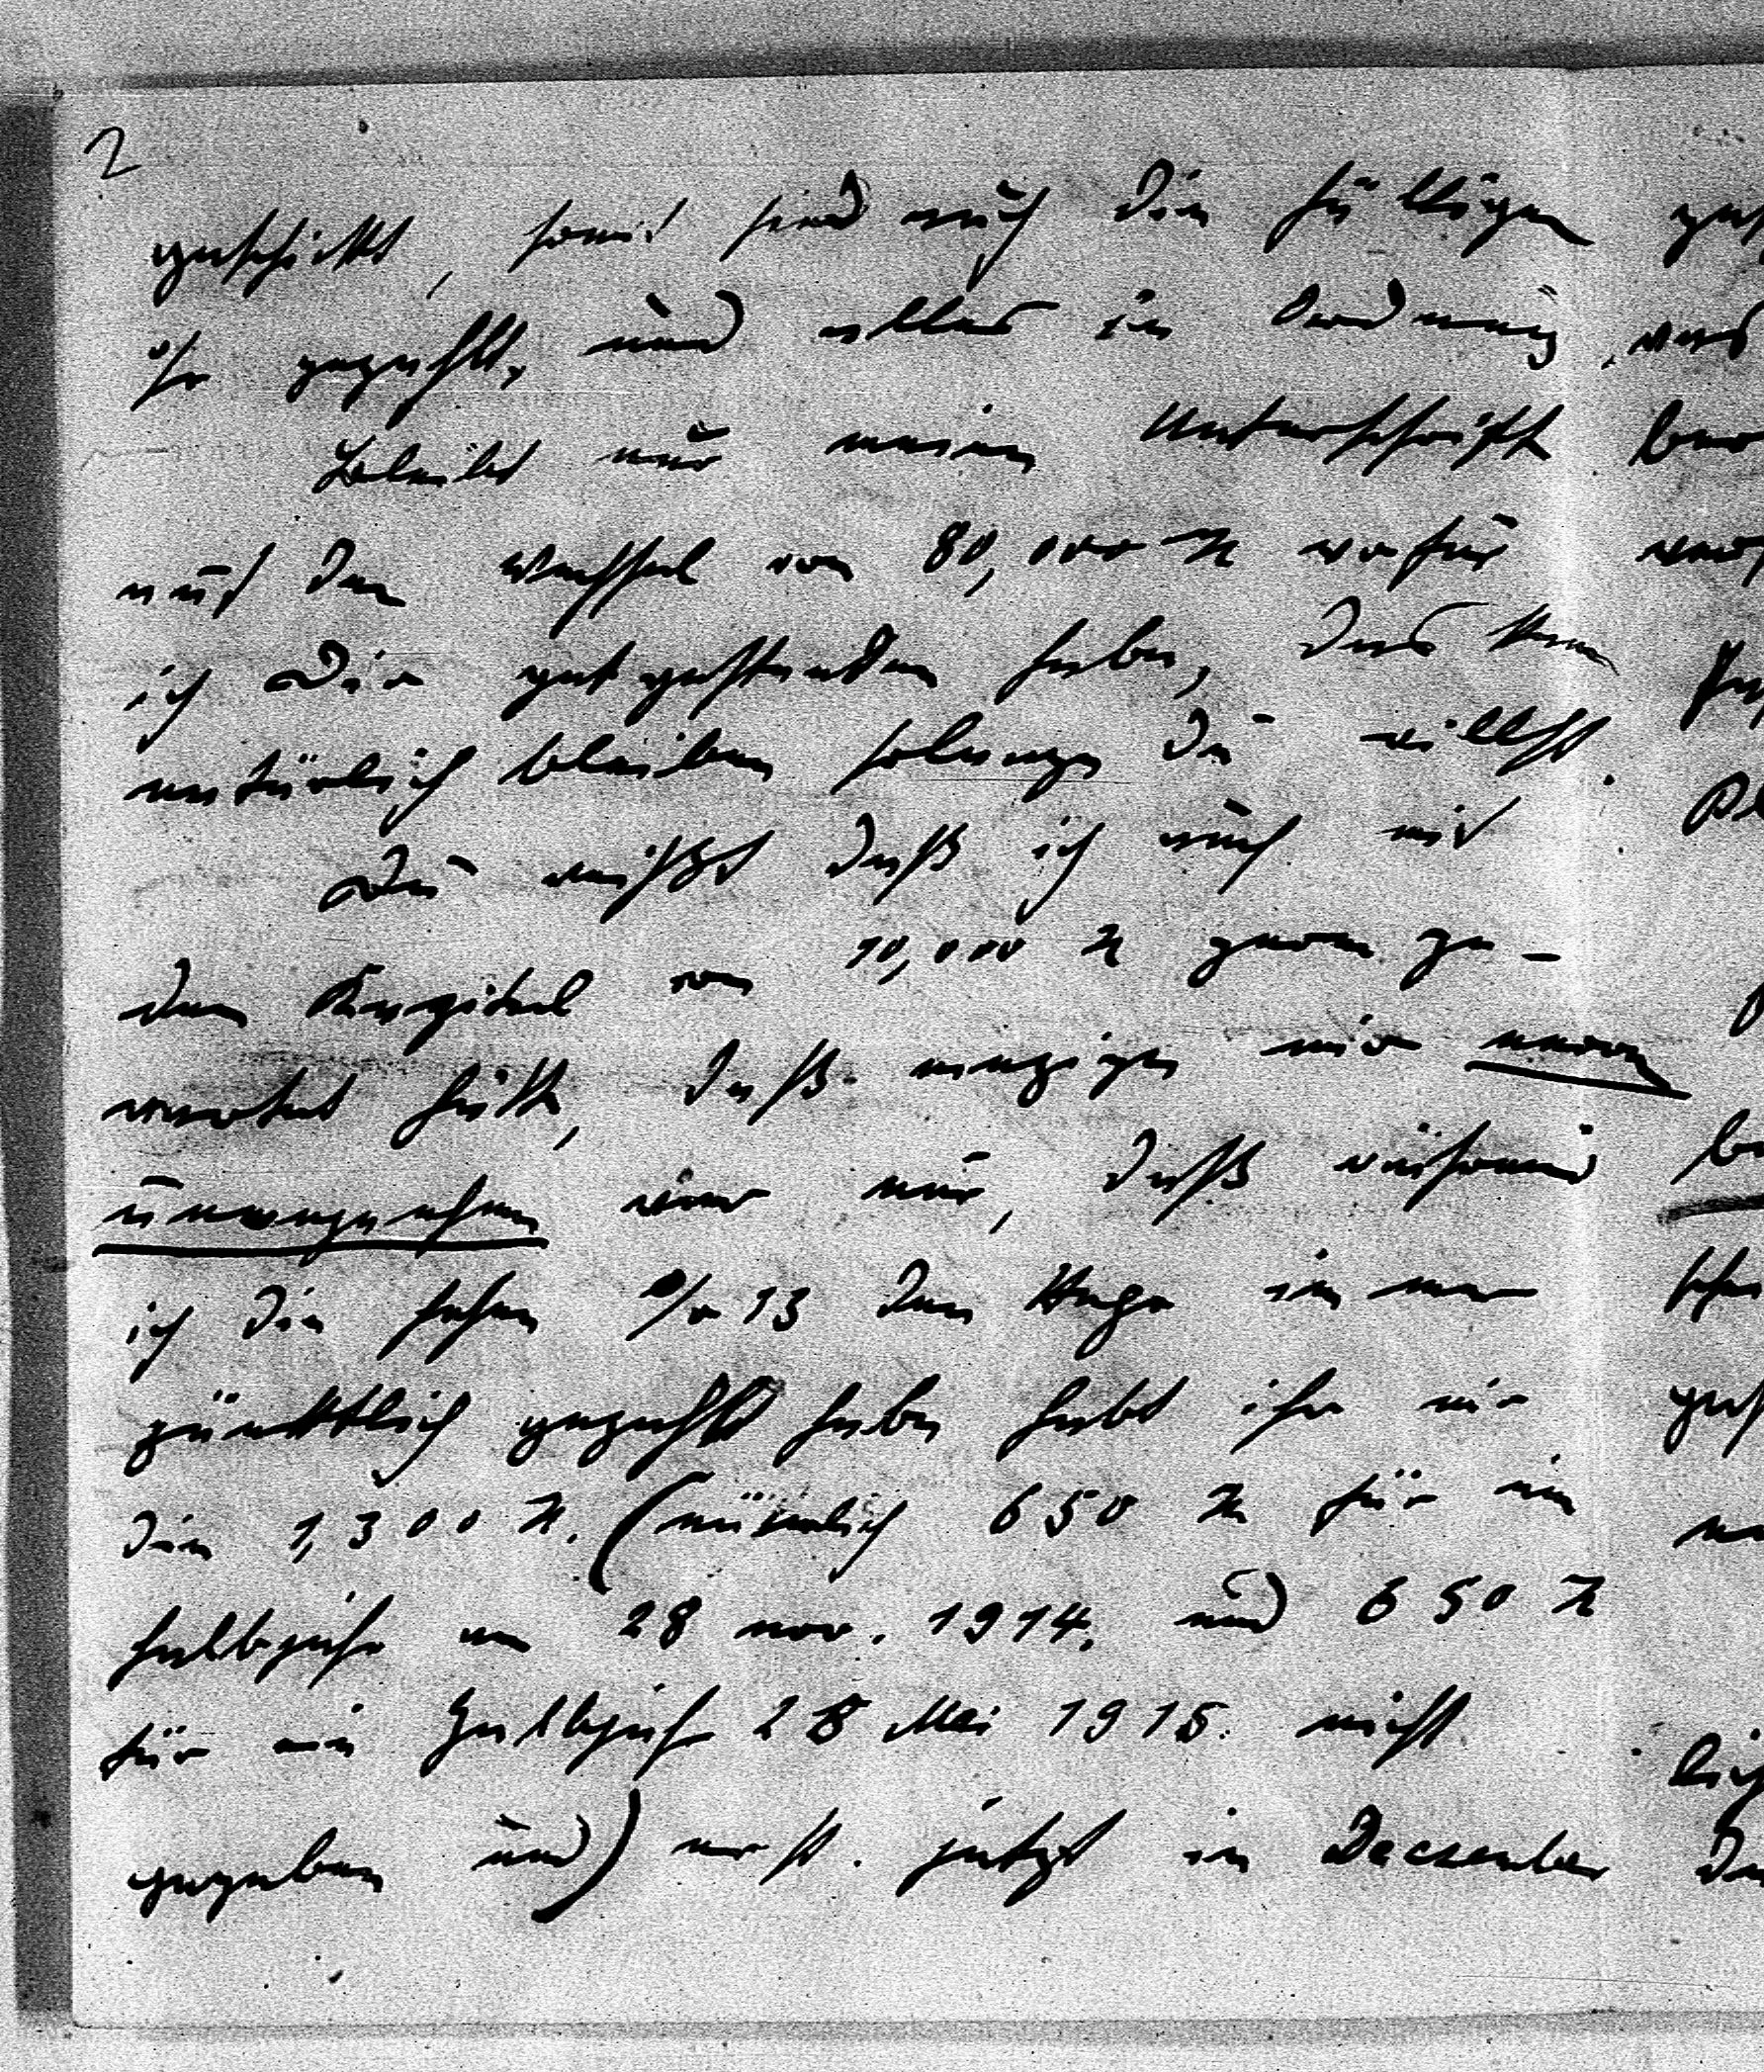 2
geschickt, somit sind auch die fälligen
% gezahlt, und alles in Ordnung.
Bleibt nur meine Unterschrift
auf den Wechsel von 80,000 K wofür
ich Dir gutgestanden habe, das kann
natürlich bleiben solange Du willst.
Du weißt daß ich auch mit
dem Kapital von 10,000 K gerne ge-
wartet hätte, daß einzige mir
unangenehme war nur, daß während
ich die hohen % 13 dem Hugo immer
pünktlich gezahlt habe habt ihr mir
die 1,300 K. (nämlich 650 K für ein
halbjahr am 28 nov. 1914. und 650 K
für ein Halbjahr 28 Mai 1915. nicht
gegeben und) erst. jetzt in Deczember